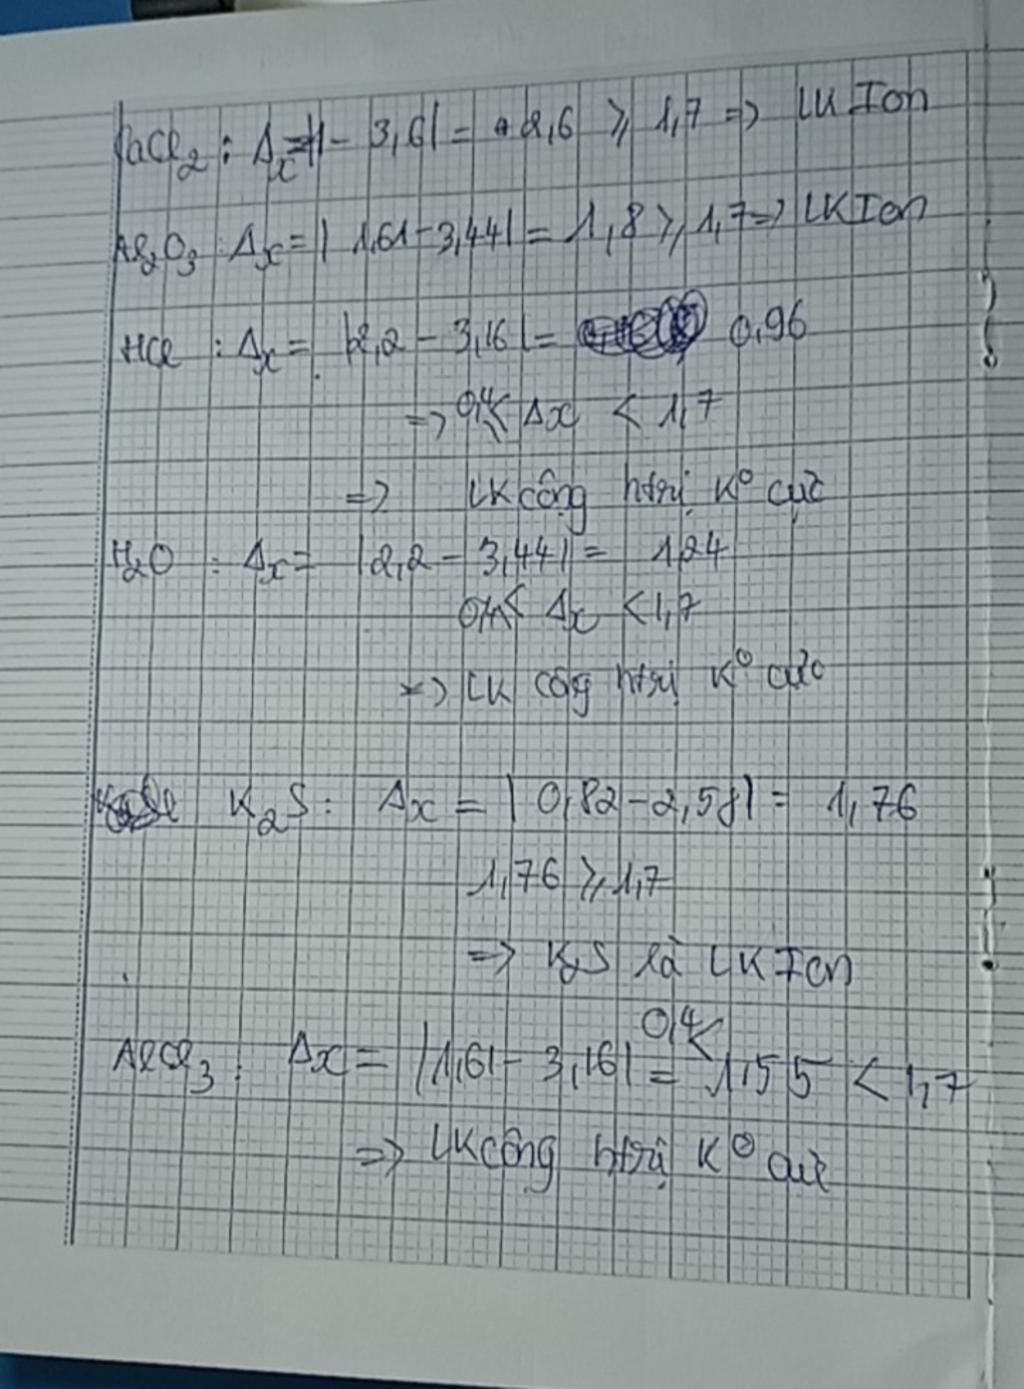 CaCl₂ : Δx = |1 - 3,6| = 2,6 ≥ 1,7 => LK Ion
Al₂O₃ : Δx = | 1,61 - 3,44| = 1,8 ≥ 1,7 => LK Ion
HCl : Δx = |2,2 - 3,16| = 0,96
=> 0,4 ≤ Δx < 1,7
=> LK cộng htrị K° cực
H₂O : Δx = |2,2 - 3,44| = 1,24
0,4 < Δx < 1,7
=> LK cộng htrị K° cực
K₂S : Δx = | 0,82 - 2,58| = 1,76
1,76 ≥ 1,7
=> K₂S là LK Ion
AlCl₃ : Δx = |1,61 - 3,16| = 0,4 < 1,55 < 1,7
=> LK cộng htrị K° cực